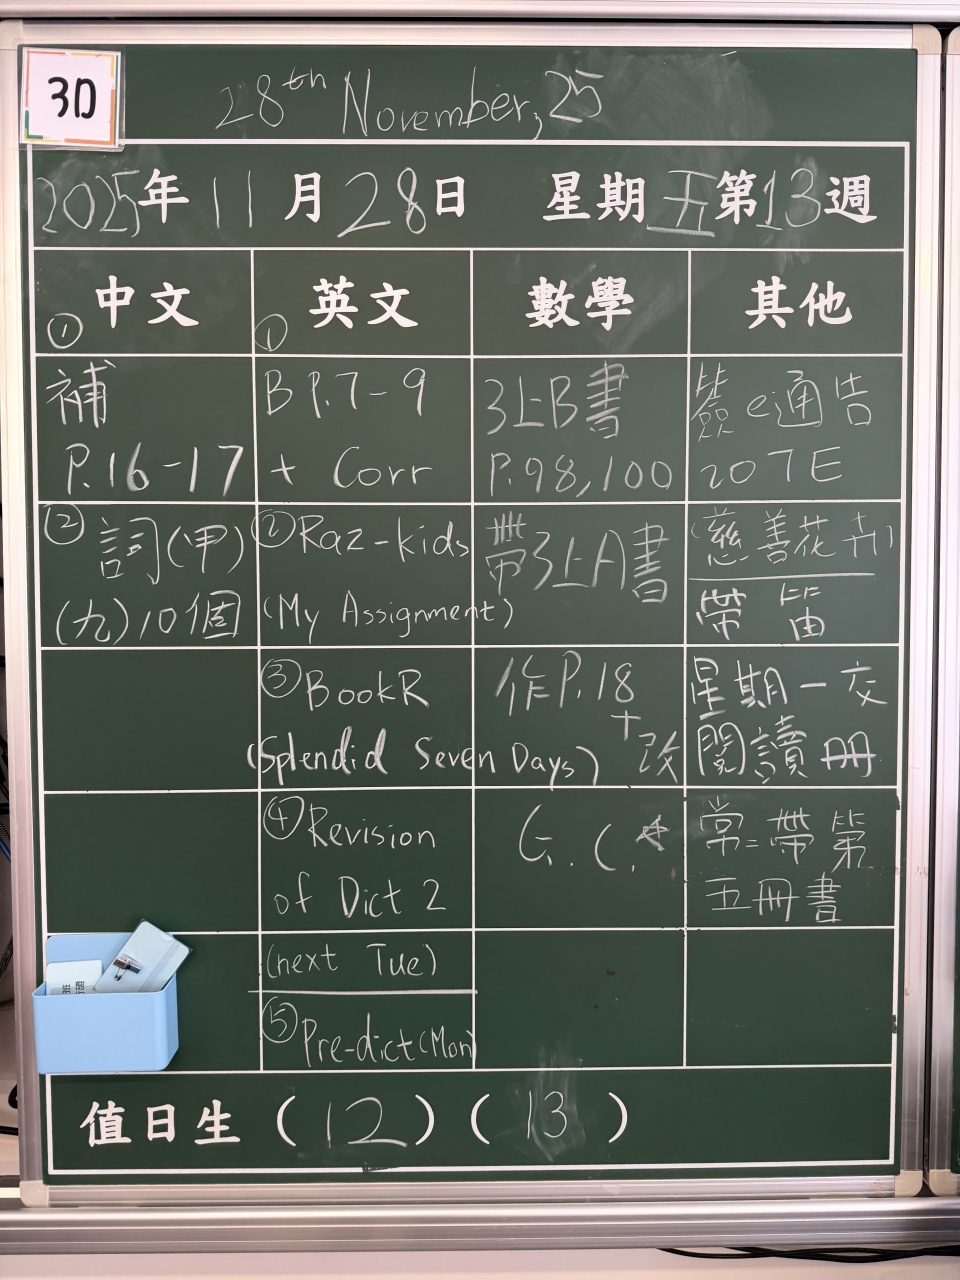 3D
28th November, 25
2025年11月28日 星期五第13週
中文
①
補
P.16-17
②詞(甲)
(九)10個
英文
①
B P.7-9
+ Corr
②Raz-kids
(My Assignment)
③BookR
(Splendid Seven Days)
④Revision
of Dict 2
(next Tue)
⑤Pre-dict(Mon)
數學
3上B書
P.98,100
帶3上A書
作P.18
+改
G.C.
其他
簽e通告
207E
(慈善花卉)
帶笛
星期一交
閱讀冊
常=帶第
五冊書
值日生(12)(13)